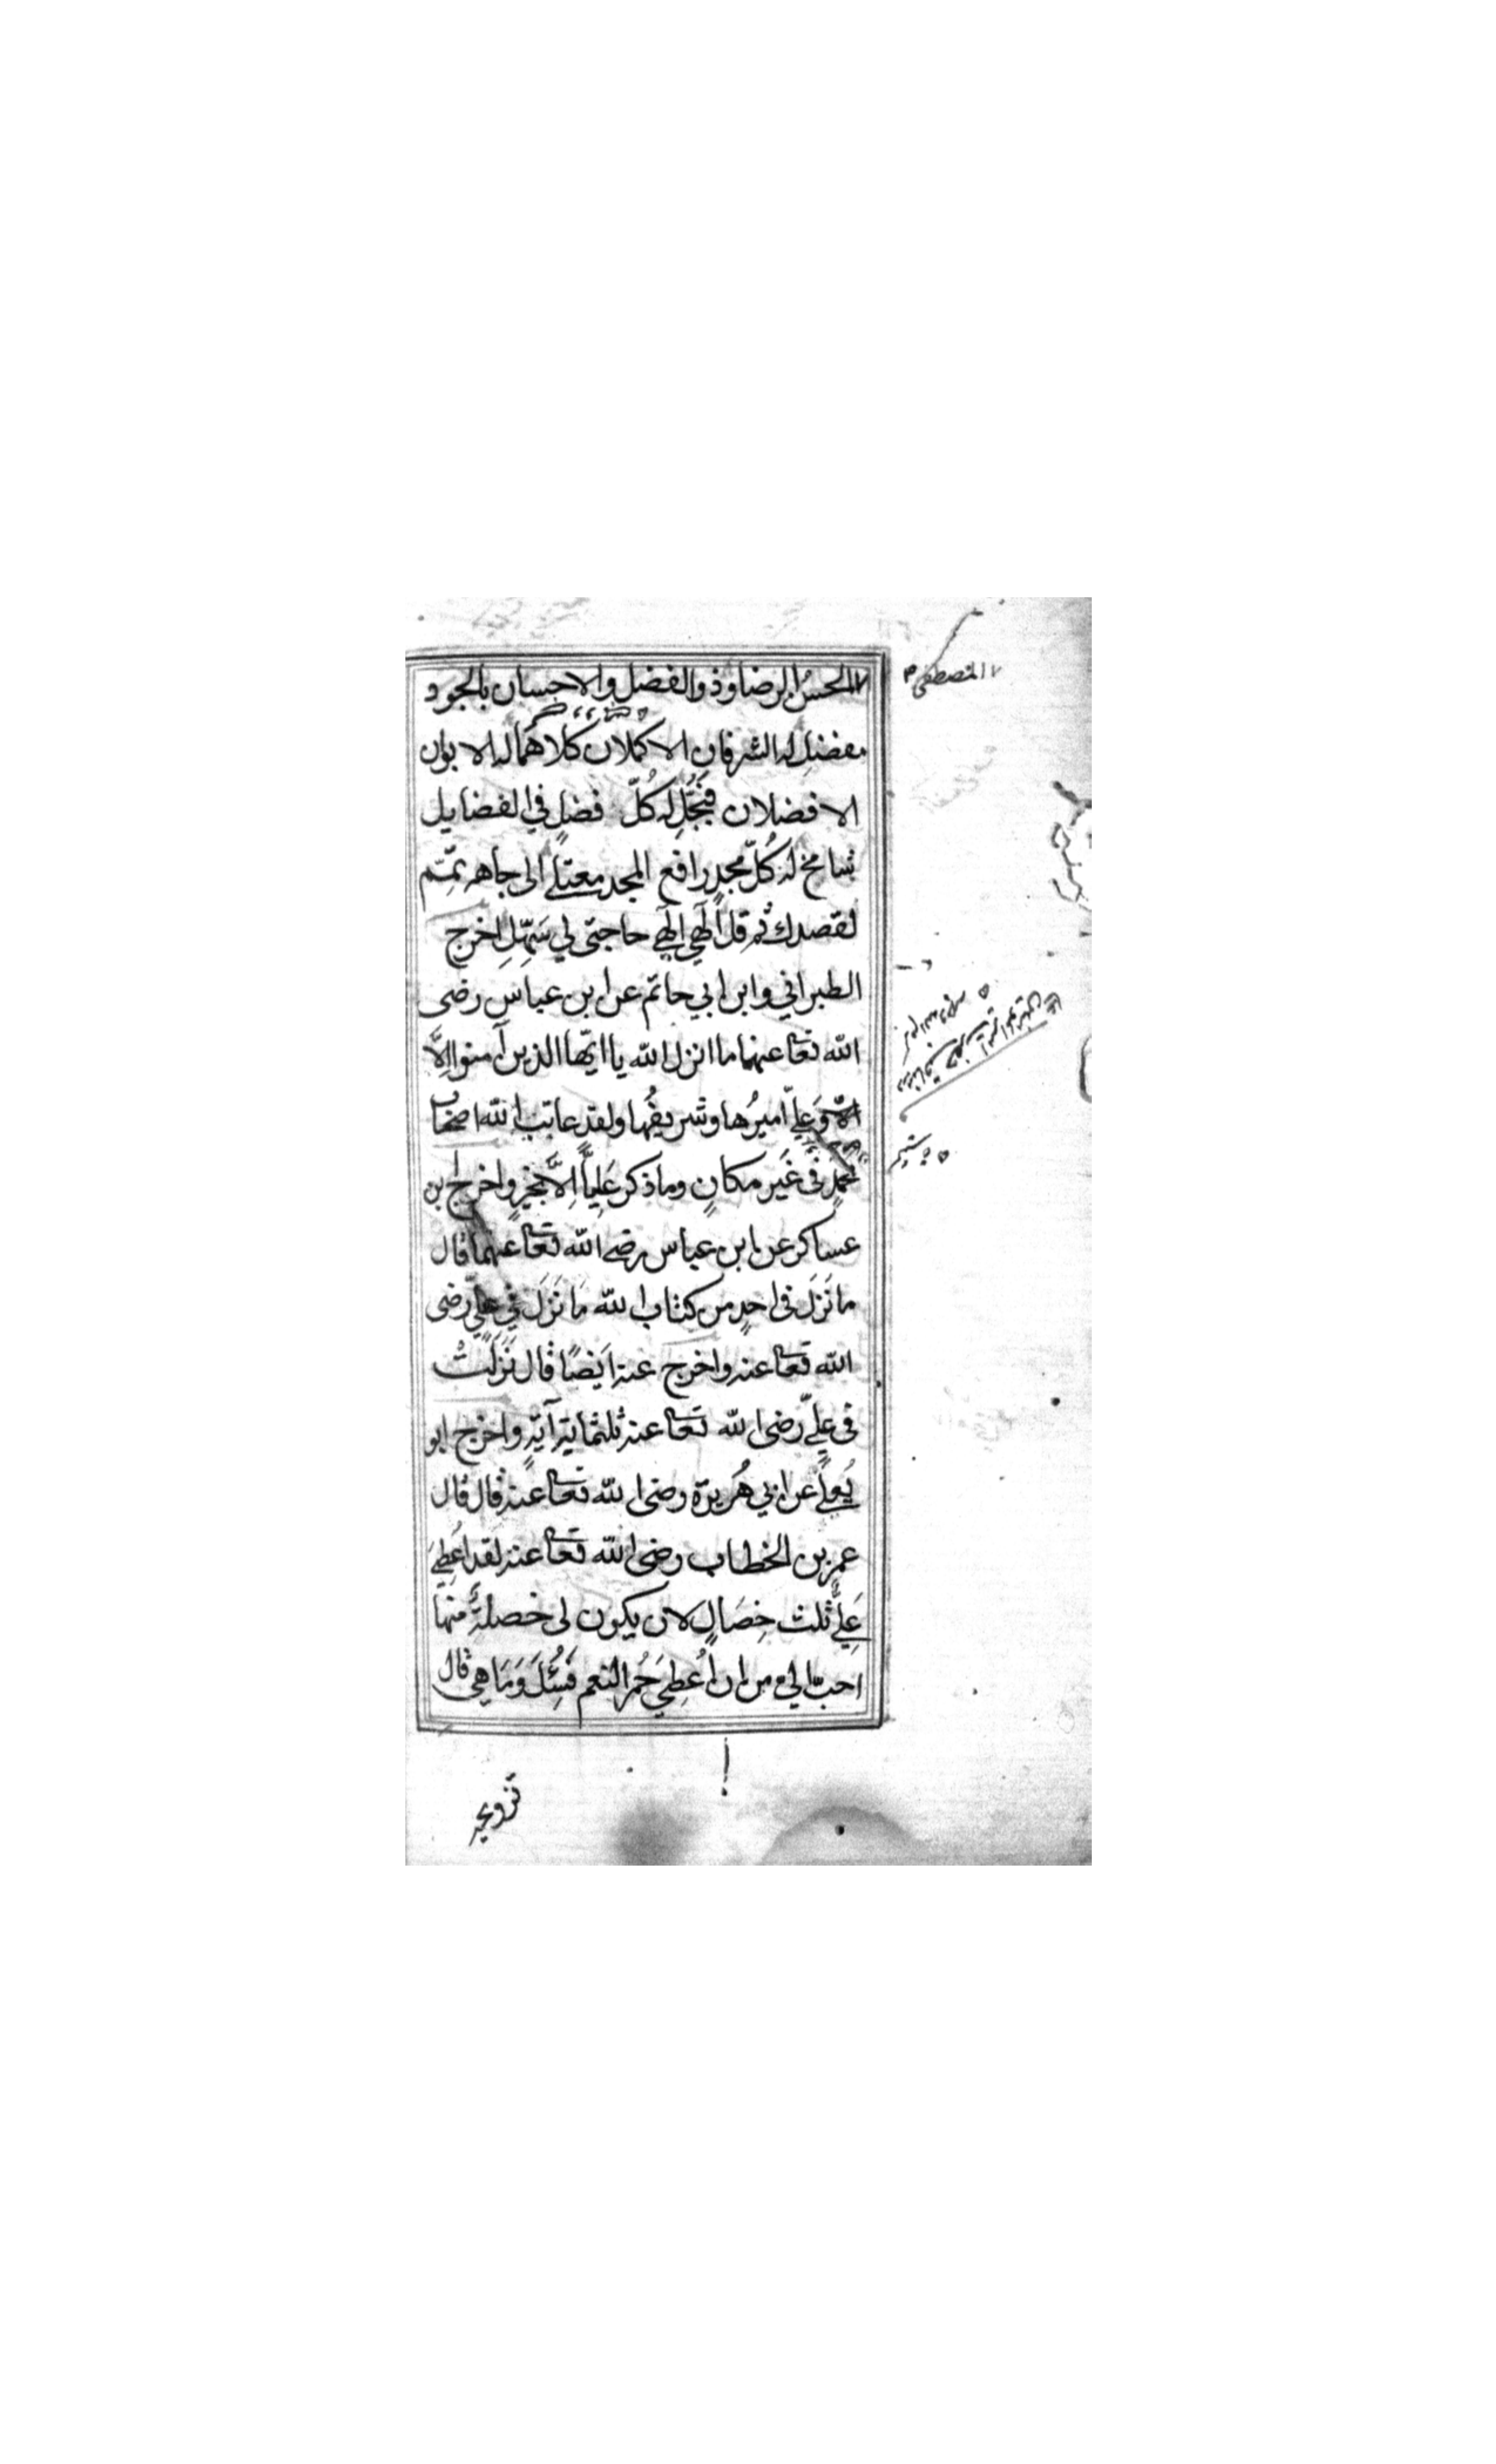 الحسن الرضا وذو الفضل والاحسان بالجود و
مفضل له الشرفان الاكملان كلاهما له الابوان
الافضلان فجل له كل فضل في الفضايل
شامخ له كل مجد رافع المجد معتلى الى جاهه تمم
لقصدك ثم قل الهي الهي حاجتي لي سهل اخرج
الطبراني وابن ابي حاتم عن ابن عباس رضى
الله تعا عنهما ما انزل الله يا ايها الذين آمنوا الَّا
وعلىّ اميرُها وشريفُها ولقد عاتب الله اصحاب
محمدٍ فى غَير مكانٍ وما ذكر عَلِيًّا اِلَّا بخيرٍ واخرج ابن
عساكر عن ابن عباس رضى الله تعا عنهما قال
ما نَزَلَ فى احدٍ من كتاب الله مَا نَزَلَ فى علىّ رضى
الله تعا عنه واخرج عنه ايضًا قال نَزَلَتْ
فى علىّ رضى الله تعا عنه ثلثماية آيةٍ واخرج ابو
يُعلى عن ابي هُريرة رضى الله تعا عنه قال قال
عمر بن الخطاب رضى الله تعا عنه لقد اُعطِىَ
عَلِىٌّ ثلث خِصَالٍ لان يكون لى خصلةٌ منها
احبّ الىّ من ان اُعطِىَ حُمر النعم فَسُئِلَ وَمَا هِى قال
تزويجه
المصطفى